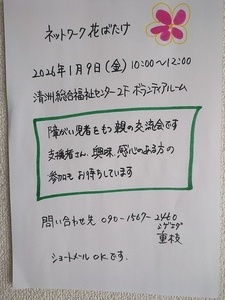 ネットワーク花ばたけ
2026年1月9日(金)10:00〜12:00
清洲総合福祉センター2F ボランティアルーム
障がい児者をもつ親の交流会です
支援者さん、興味、感心のある方の
参加もお待ちしています
問い合わせ先 090-1567-2440
シゲエダ
重枝
ショートメールOKです.